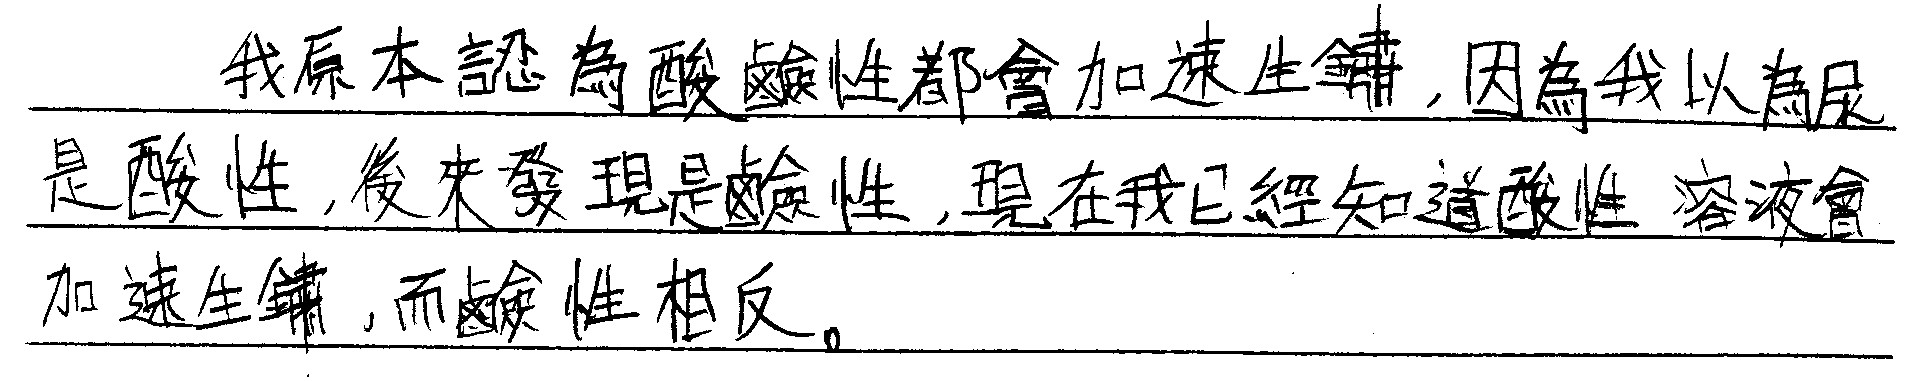 我原本認為酸鹼性都會加速生鏽,因為我以為尿
是酸性,後來發現是鹼性,現在我已經知道酸性溶液會
加速生鏽,而鹼性相反。